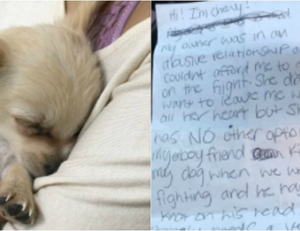 Hi! I'm chewy!
my owner was in an
abusive relationship a
couldnt afford me to g
on the flight. She di
want to leave me w
all her heart but s
has NO other optio
my boyfriend ki
my dog when we we
fighting and he ha
knot on his head